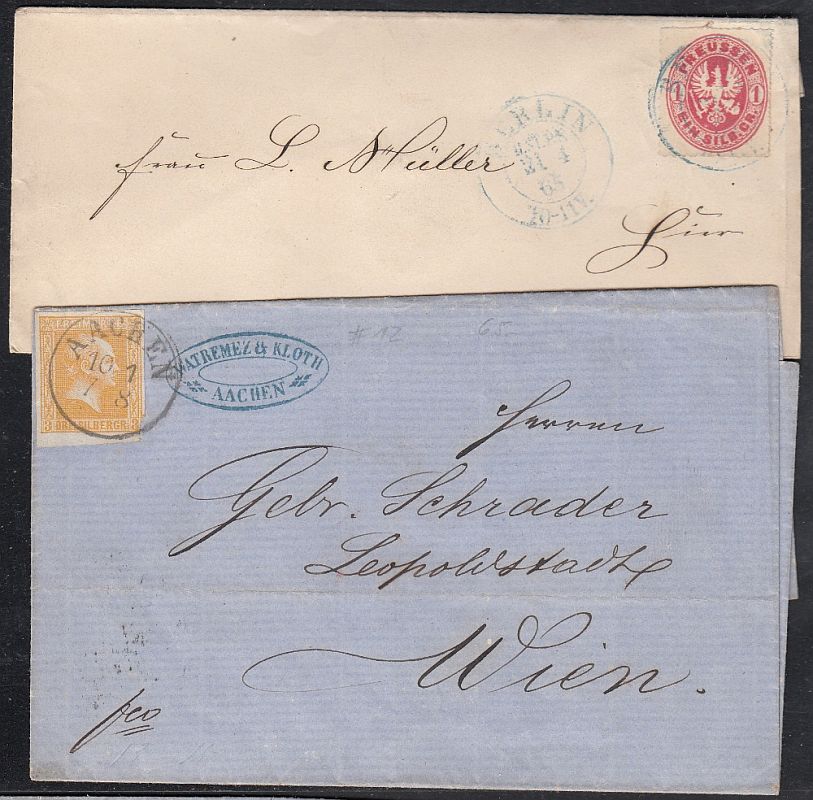 PREUSSEN
1 1
EIN SILB.GR.
BERLIN
21 4
10-11V.
Frau L. Müller
Hier
AACHEN
10 1
7 8
3 DREI SILBERGR. 3
WATREMEZ & KLOTH
AACHEN
#12
65
Herren
Gebr. Schrader
Leopoldstadt
Wien.
fco